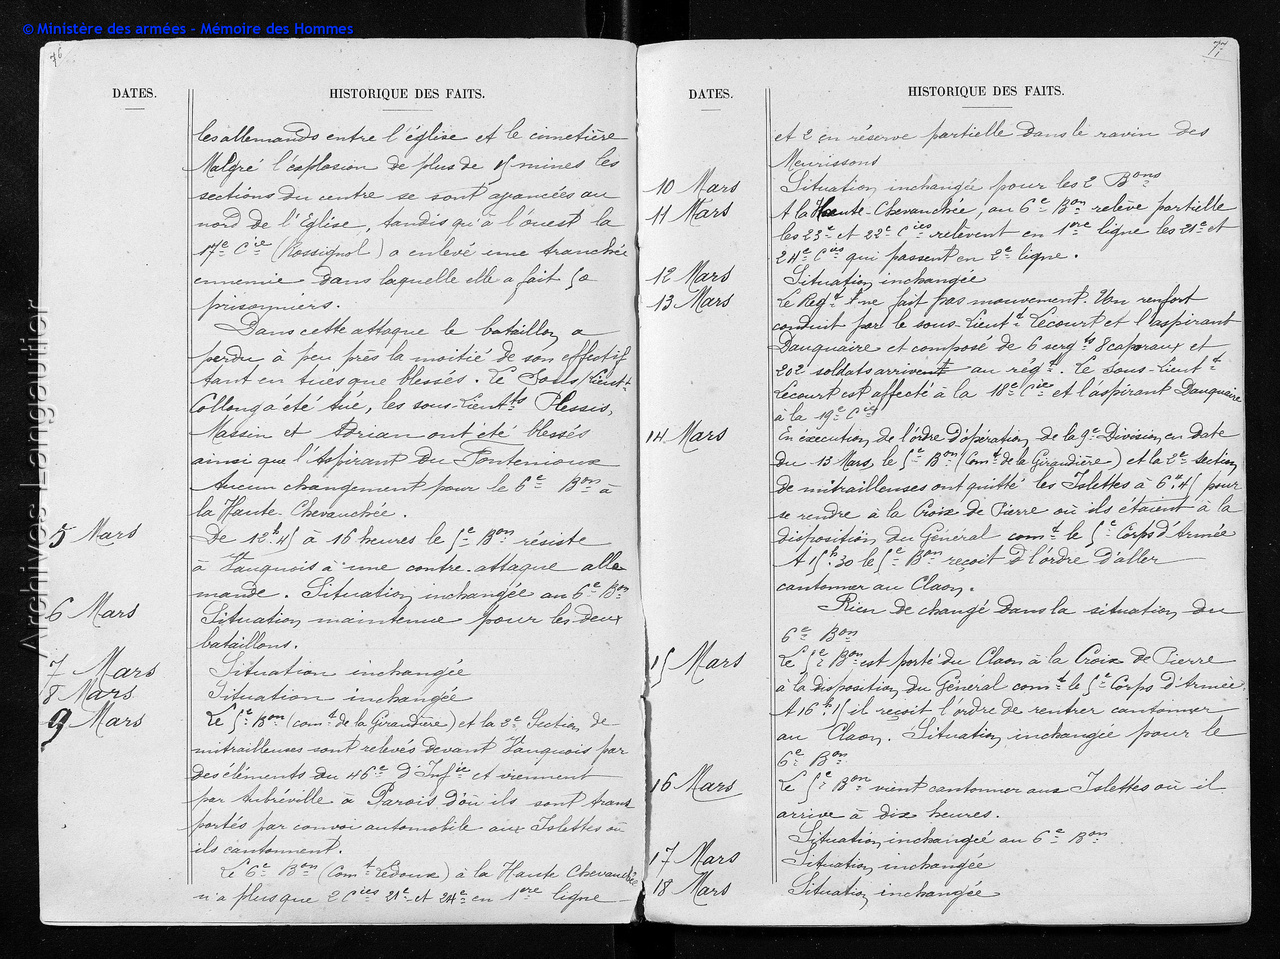 © Ministère des armées - Mémoire des Hommes
Archives Langautier
76
DATES.
HISTORIQUE DES FAITS.
les allemands entre l'église et le cimetière
Malgré l'explosion de plus de 15 mines les
sections du centre se sont avancées au
nord de l'Eglise, tandis qu'à l'ouest la
17e Cie (Rossignol) a enlevé une tranchée
ennemie dans laquelle elle a fait 50
prisonniers.
Dans cette attaque le bataillon a
perdu à peu près la moitié de son effectif
tant en tués que blessés. Le Sous/Lieutt
Collong a été tué, les sous-Lieutts Plessis,
Massin et Adrian ont été blessés
ainsi que l'Aspirant Du Fontenioux
Aucun changement pour le 6e Bon à
la Haute-Chevauchée.
5 Mars
De 12h45 à 16 heures le 5e Bon résiste
à Vauquois à une contre-attaque alle
mande. Situation inchangée au 6e Bon
6 Mars
Situation maintenue pour les deux
bataillons.
7 Mars
Situation inchangée
8 Mars
Situation inchangée
9 Mars
Le 5e Bon (comt de la Giraudière) et la 2e Section de
mitrailleuses sont relevés devant Vauquois par
des éléments du 46e d'Infie et viennent
par Aubréville à Parois d'où ils sont trans
portés par convoi automobile aux Islettes où
ils cantonnent.
Le 6e Bon (Comt Ledoux) à la Haute Chevauchée
n'a plus que 2 Cies 21e et 24e en 1ere ligne
77
DATES.
HISTORIQUE DES FAITS.
et 2 en réserve partielle dans le ravin des
Meurissons
10 Mars
Situation inchangée pour les 2 Bons
11 Mars
A la Haute-Chevauchée, au 6e Bon relève partielle
les 23e et 22e Cies relèvent en 1ere ligne les 21e et
24e Cies qui passent en 2e ligne.
12 Mars
Situation inchangée
13 Mars
Le Régt ne fait pas mouvement. Un renfort
conduit par le sous-Lieutt Lecourt et l'aspirant
Dauquaire et composé de 6 sergts 8 caporaux et
202 soldats arrivent au régt. Le Sous-Lieutt
Lecourt est affecté à la 18e Cie et l'aspirant Dauquaire
à la 19e Cie
14 Mars
En exécution de l'ordre d'opération de la 9e Division en date
du 13 Mars, le 5e Bon (Comt de la Giraudière) et la 2e section
de mitrailleuses ont quitté les Islettes à 6h45 pour
se rendre à la Croix de Pierre où ils étaient à la
disposition du Général comt le 5e Corps d'Armée
A 15h30 le 5e Bon reçoit d l'ordre d'aller
cantonner au Claon.
Rien de changé dans la situation du
6e Bon
15 Mars
Le 5e Bon est porté du Claon à la Croix de Pierre
à la disposition du Général comt le 5e Corps d'Armée.
A 16h15 il reçoit l'ordre de rentrer cantonner
au Claon. Situation inchangée pour le
6e Bon
16 Mars
Le 5e Bon vient cantonner aux Islettes où il
arrive à dix heures.
Situation inchangée au 6e Bon
17 Mars
Situation inchangée
18 Mars
Situation inchangée